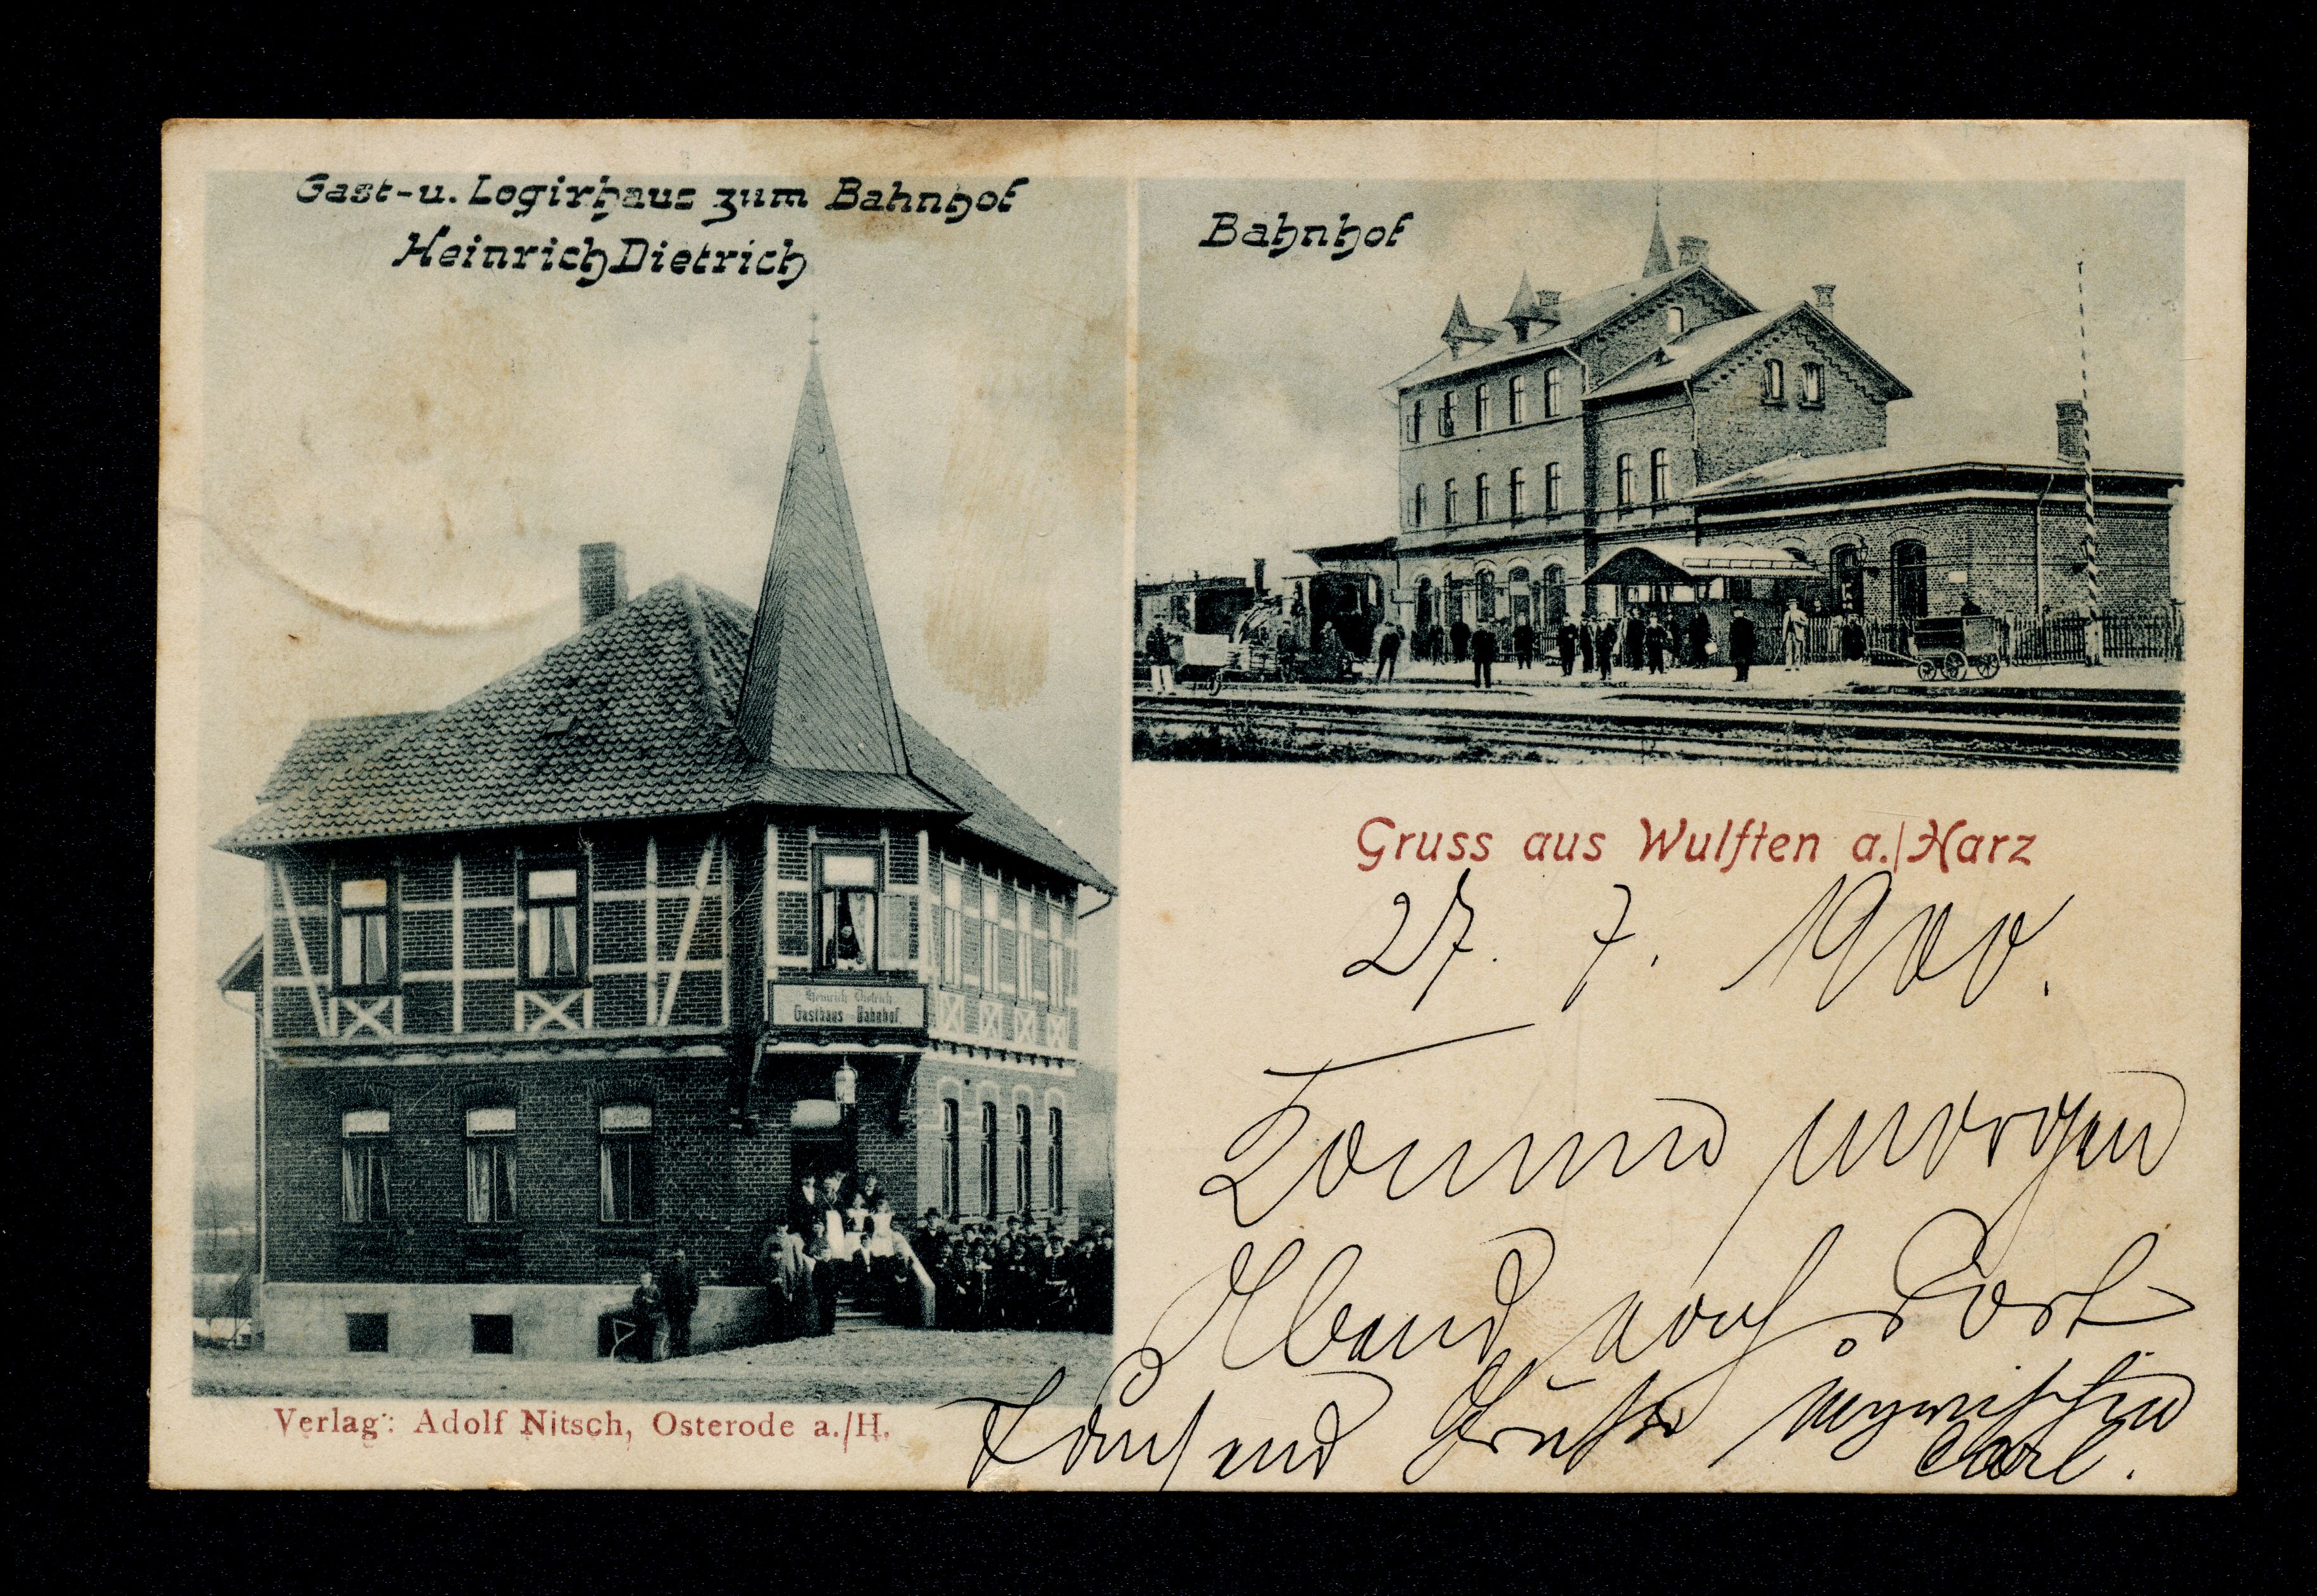 Gast-u. Logirhaus zum Bahnhof
Heinrich Dietrich
Bahnhof
Heinrich Dietrich
Gasthaus Bahnhof.
Gruss aus Wulften a./Harz
27. 7. 1900.
Komme morgen
Abend nach dort
Tausend Grüße inzwischen
Carl.
Verlag: Adolf Nitsch, Osterode a./H.